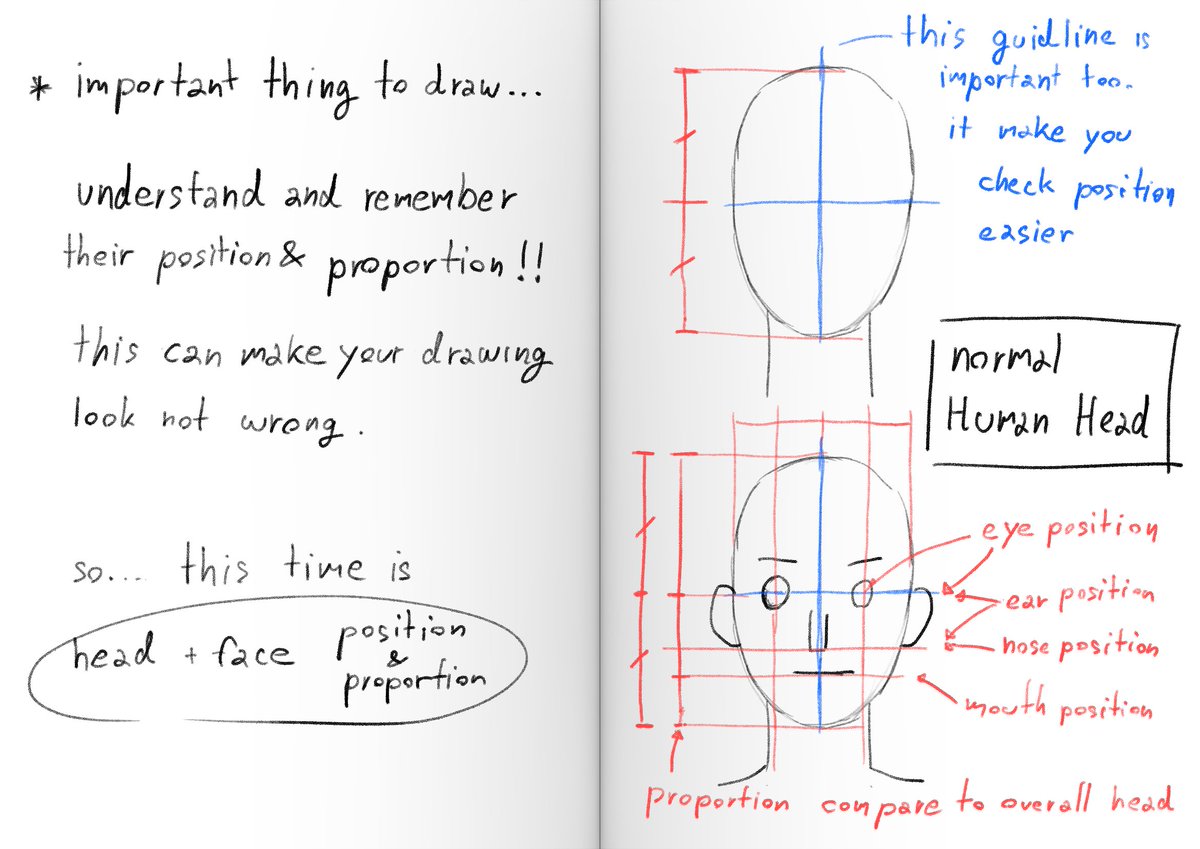 * important thing to draw...
understand and remember
their position & proportion!!
this can make your drawing
look not wrong.
so.... this time is
head + face position
&
proportion
this guidline is
important too.
it make you
check position
easier
normal
Human Head
eye position
ear position
nose position
mouth position
proportion compare to overall head